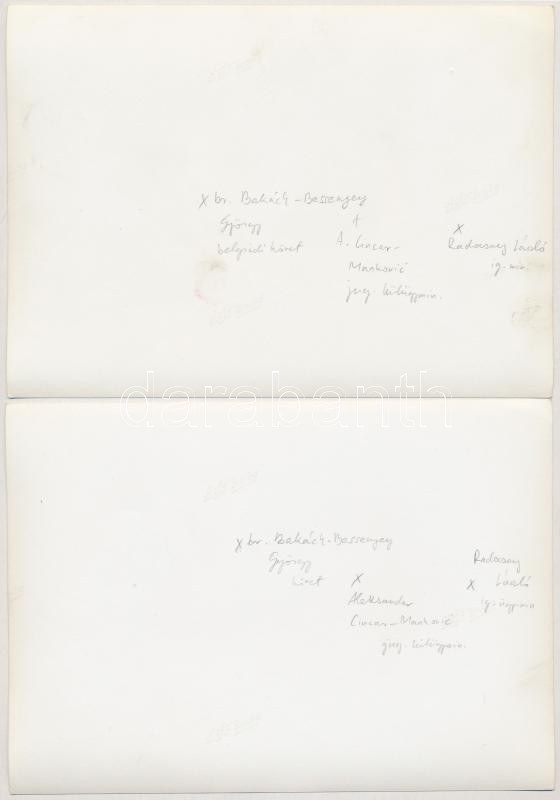 x br. Bakách-Bessenyey
György
belgrádi követ
x
A. Cincar-
Marković
jug. külügymin.
x
Radocsay László
ig. min.
darabanth
x br. Bakách-Bessenyey
György
követ
x
Aleksandar
Cincar-Marković
jug. külügymin.
Radocsay
x László
ig. ügymin